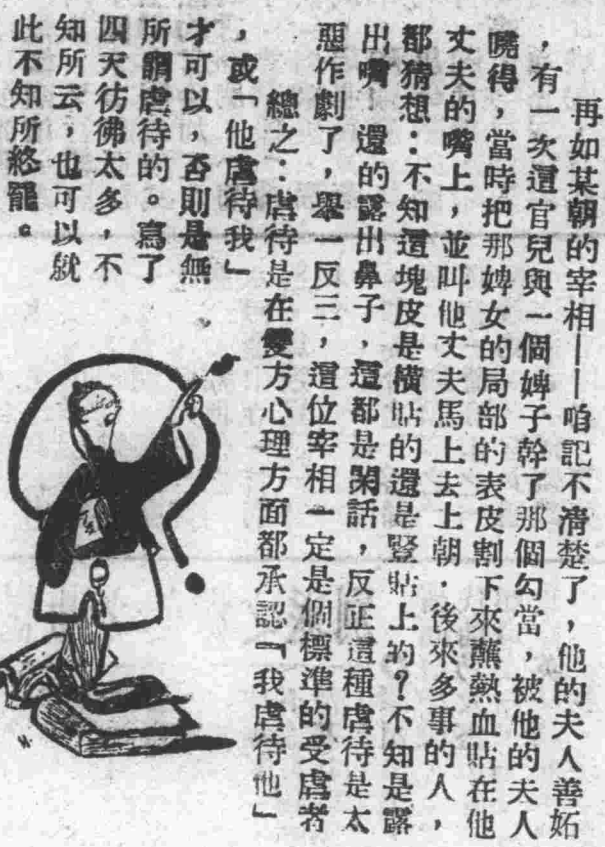 再如某朝的宰相——咱記不清楚了，他的夫人善妬
，有一次這官兒與一個婢子幹了那個勾當，被他的夫人
曉得，當時把那婢女的局部的表皮割下來蘸熱血貼在他
丈夫的嘴上，並叫他丈夫馬上去上朝．後來多事的人，
都猜想：不知這塊皮是橫貼的還是豎貼上的？不知是露
出嘴　還的露出鼻子，這都是閑話，反正這種虐待是太
惡作劇了，舉一反三，這位宰相一定是個標準的受虐者
總之：虐待是在雙方心理方面都承認「我虐待他」
，或「他虐待我」
才可以，否則是無
所謂虐待的。寫了
四天彷彿太多，不
知所云，也可以就
此不知所終罷。